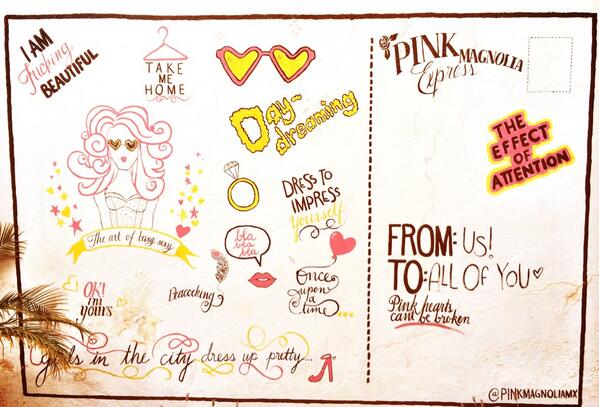 I AM
fucking
BEAUTIFUL
TAKE
ME
HOME
Day-
dreaming
DRESS TO
IMPRESS
yourself
The art of being sexy
bla
bla
bla
OK!
i'm
yours
Peacocking
Once
upon
a
time
girls in the city dress up pretty...
PINK MAGNOLIA
Express
THE
EFFECT
OF
ATTENTION
FROM: US!
TO: ALL OF YOU
Pink hearts
cant be broken
@PINKMAGNOLIAMX